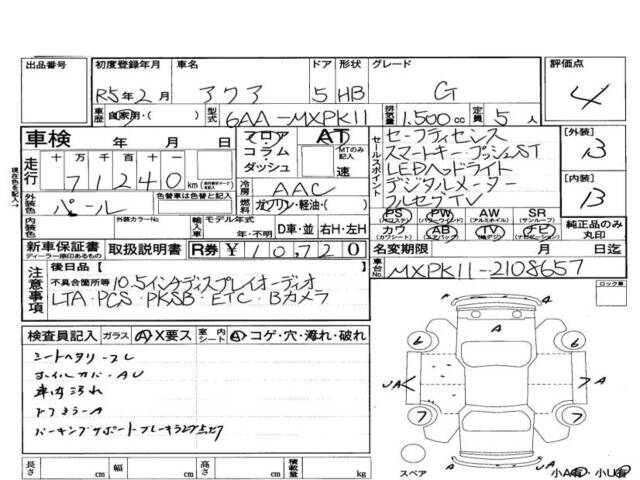 出品番号 初度登録年月 車名 ドア 形状 グレード 評価点
R5年2月 アクア 5 HB G 4
車歴 自家用・( ) 型式 6AA-MXPK11 排気量 1.500cc 定員 5人
車検 年 月 日 フロア コラム・ダッシュ AT MTのみ記入 速
セールスポイント セーフティセンス
スマートキー プッシュST
LEDヘッドライト
デジタルメーター
フルセグTV
[外装] B
[内装] B
走行 十万 万 千 百 十 一
71240km
冷房 AAC
外装色 パール 燃料 ガソリン・軽油・( )
PS PW AW SR
カワ AB TV ナビ
純正品のみ丸印
内装色 外装カラーNo. 輸入車 モデル年式 年・不明 D車・並 右H・左H
新車保証書 取扱説明書 R券 ¥10,720
ディーラー捺印あるもの
名変期限 月 日迄
車台No. MXPK11-2108657
現在色を記入→
注意事項 後日品[ ]
不具合箇所等 10.5インチディスプレイオーディオ
LTA・PCS・PKSB・ETC・Bカメラ
ロック車
検査員記入 ガラス A・X要ス 室内シート A・コゲ・穴・汚れ・破れ
シートヘタリ・スレ
ホイルカバーAU
車内汚れ
ドアミラーA
A
6 6
UA A A
7 7
A
スペア 小A有・小U有
長さ cm 幅 cm 高さ cm 積載量 kg